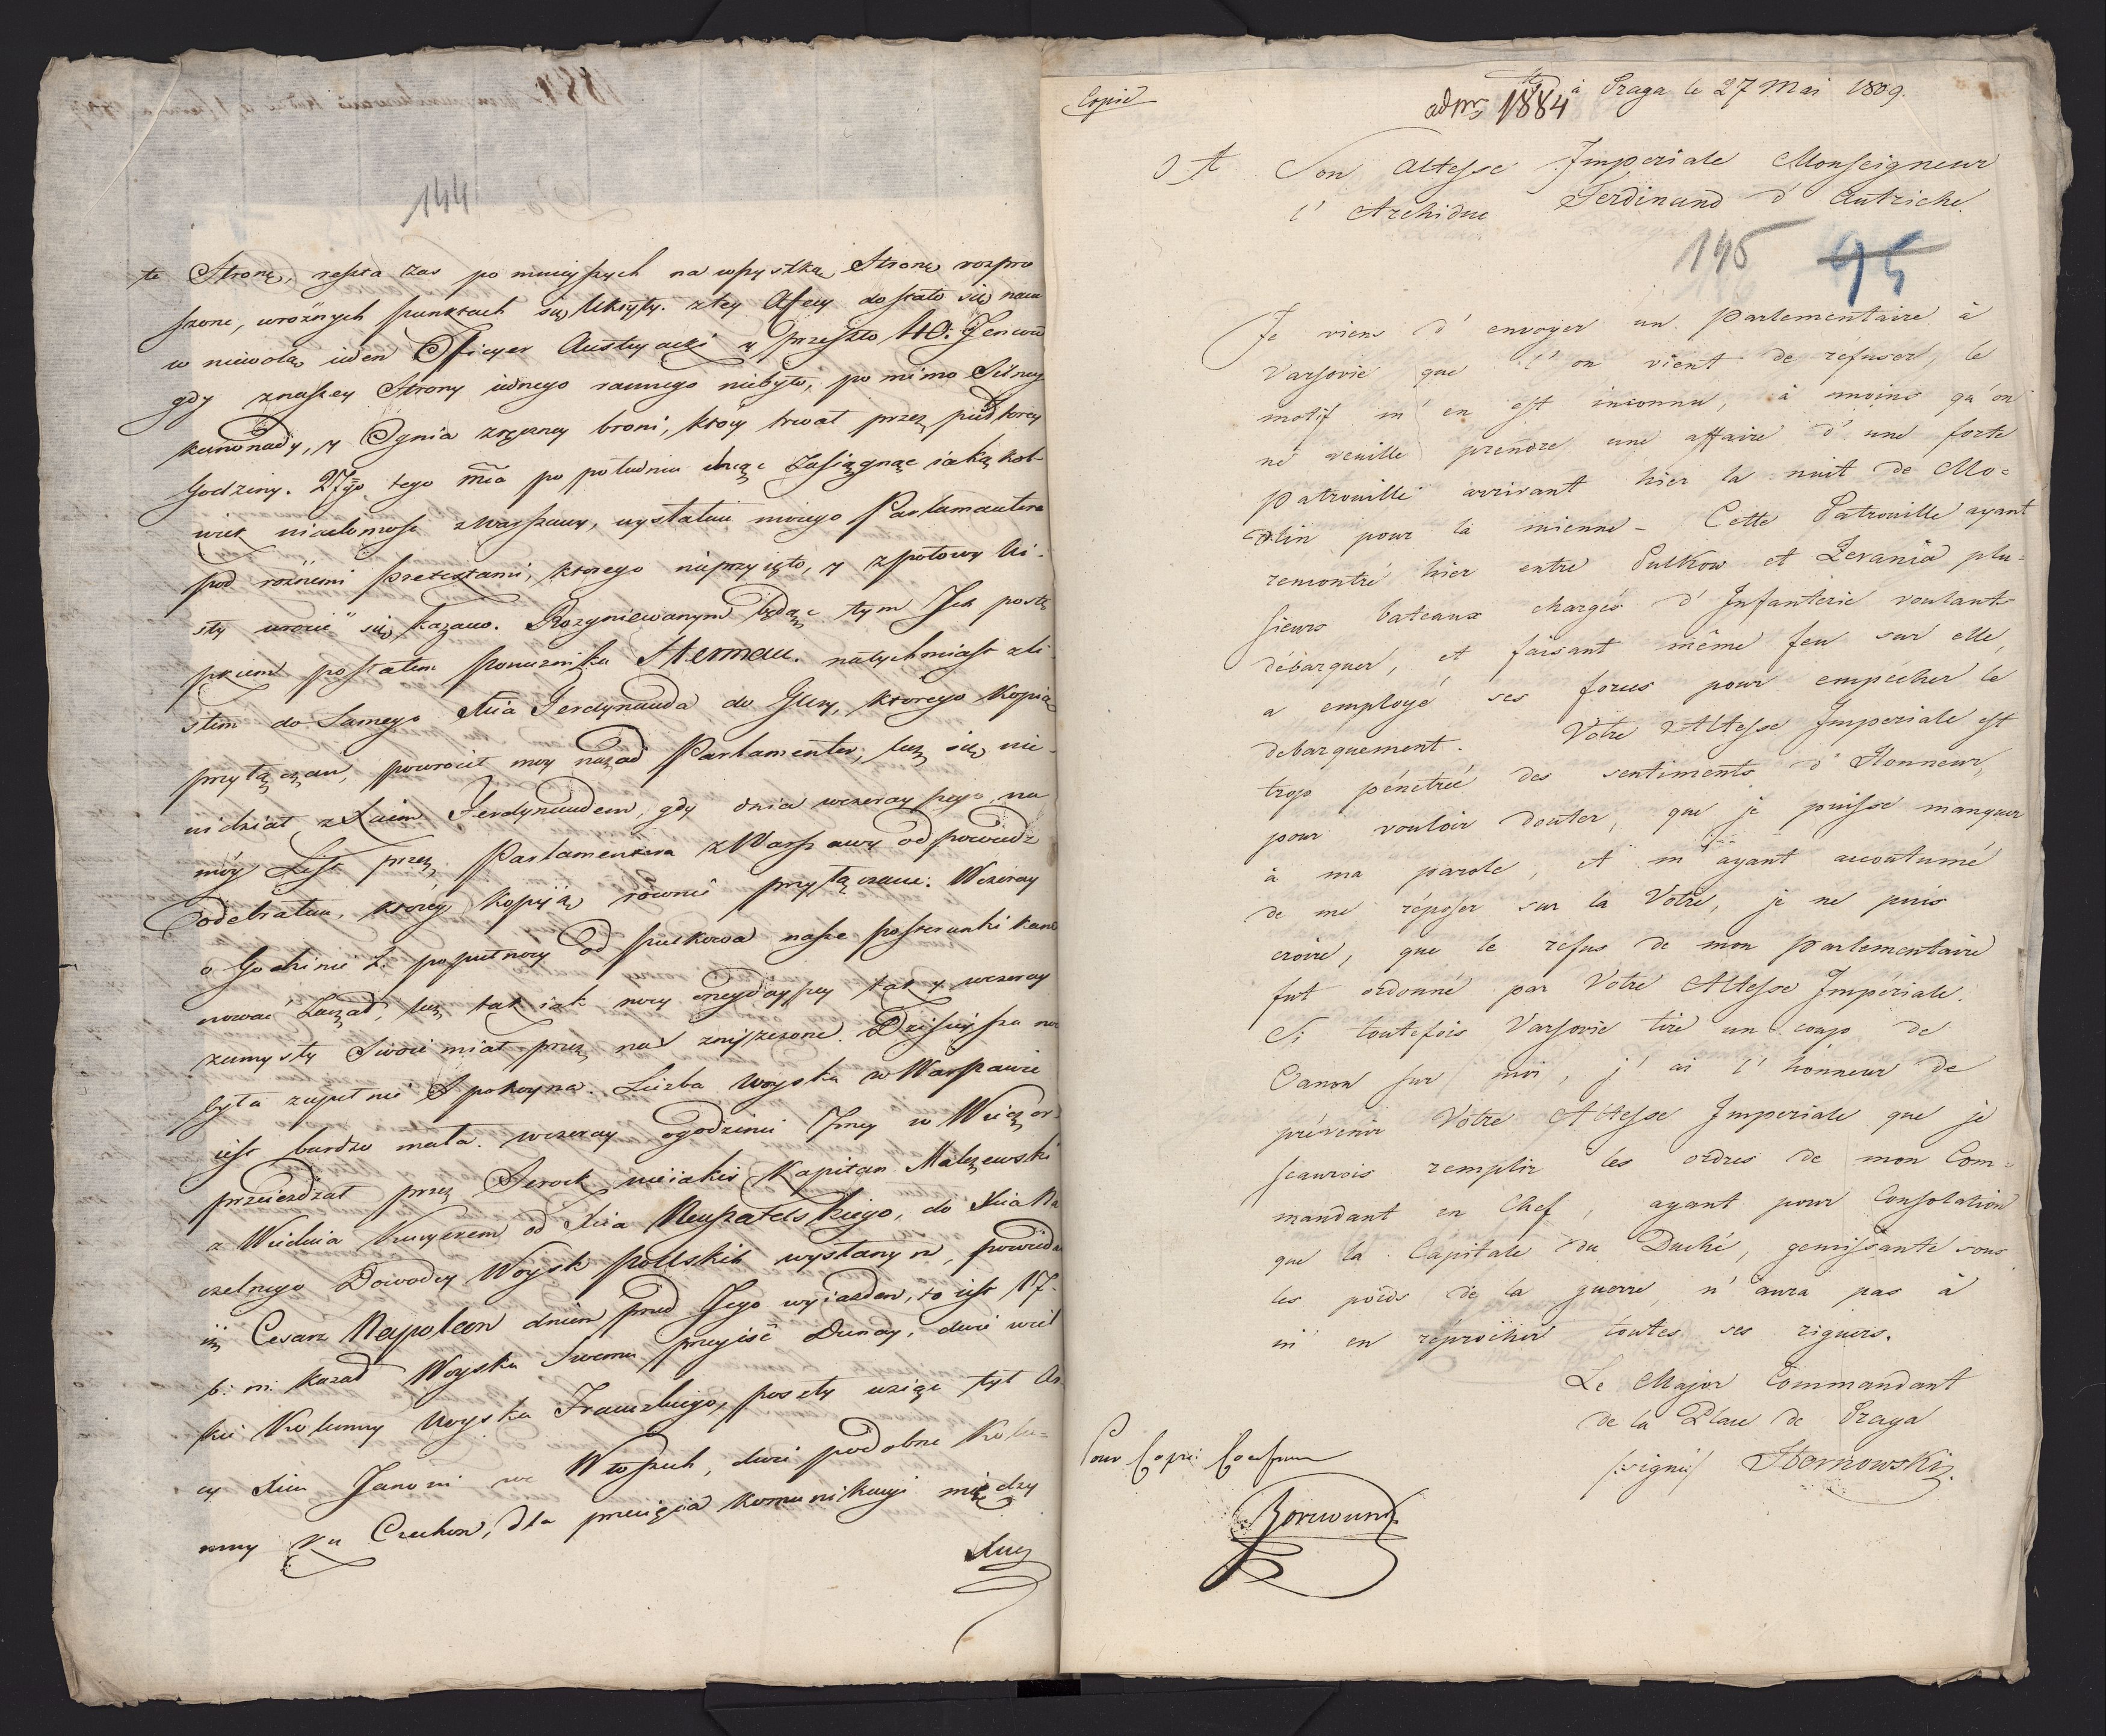 144
te Stronę, reszta zas po mnieyszych na wszystką Stronę rozpro
szone, w rożnych punktach się Ukryły. z tey Afery dostało się nam
w niewolą ieden Officyer Austryacki y przeszło 40. Jencow
gdy znaszey Strony iednego rannego niebyło, po mimo Silney
kanonady, y Ognia zręczney broni, ktory trwał przez puł torey
Godziny. 27go tego mca po południu chcąc zasiągnąc iakąkol
wiek wiadomosc z Warszawy, wysłałem mojego Parlamentera
pod rożnemi pretextami, ktorego nieprzyięto, y z połowy Wi-
sły wrocic się kazano. Rozgniewanym będąc tym Jch postę
pkiem posłałem Porucznika Herman. natychmiast z li-
stem do Samego Xcia Ferdynanda do Gury, ktorego Kopią
przyłączam, powrocił moy nazad Parlamenter, lecz się nie
widział z Xciem Ferdynandem, gdy dnia wczorayszego na
móy List przez Parlamentera z Warszawy odpowiedz
odebrałem, ktorey kopiją rownie przyłączam. Wczoray
o Godzinie 2. popułnocy od Pulkowa nasze posterunki kano
nować Zaczął, lecz tak iak nocy onegdayszey tak y wczoray
zamysły Swoie miał przez nas zniszczone. Dzisieysza noc
była zupełnie Spokoyna. Liczba woyska w Warszawie
iest bardzo mała. wczoray ogodzinie 7mey w Wieczor
przeiezdzał przez Serock nieiakis Kapitan Malczewski
z Wiednia Kuryerem od Xcia Neuszatelskiego, do Xcia Na
czelnego Dowodcy Woysk pollskich wysłany, powieda
iż Cesarz Napoleon dniem przed Jego wyiazdem, to iest 17-
b: m: kazał Woysku Swemu przeyisć Dunay, dwie wiel
kie Kolumny woyska Francuzkiego, poszły wziąc tył Ar
cy Xciu Janowi we Włoszech, dwie podobne Kolu=
mny ku Czechom, dla przecięcia kommunikacyi między
Arcy
Copie
ad Nr 1884
à Praga le 27 Mai 1809.
A Son Altesse Imperiale Monseigneur
l' Archiduc Ferdinand d' Autriche.
146 95
Je viens d' envoyer un Parlementaire à
Varsovie que l' on vient de réfuser, le
motif m' en est inconnu, à moins qu'on
ne veuille prendre une affaire d' une forte
Patrouille arrivant hier la nuit de Mo=
dlin pour la mienne - Cette Patrouille ayant
remontré hier entre Pulkow et Zerania plu=
sieurs bateaux chargés d' Infanterie voulants
débarquer, et faisant même feu sur elle,
a employé ses forces pour empécher le
debarquement. Votre Altesse Imperiale est
trop pénetrée des sentiments d' Honneur,
pour vouloir douter, que je puisse manquer
à ma parole, et m' ayant accoutumé
de me réposer sur la Votre, je ne puis
croire, que le réfus de mon Parlementaire
fut ordonné par Votre Altesse Impériale.
Si toutefois Varsovie tire un coup de
Canon sur moi, j' ai l' honneur de
prévenir Votre Altesse Imperiale que je
scaurois remplir les ordres de mon Com=
mandant en Chef, ayant pour Consolation
que la Capitale du Duché, gemissante sous
les poids de la guerre, n' aura pas à
m' en réprocher toutes ses riguers.
Le Major Commandant
de la Place de Praga
/:signé:/ Hornowski.
Pour Copie Conforme